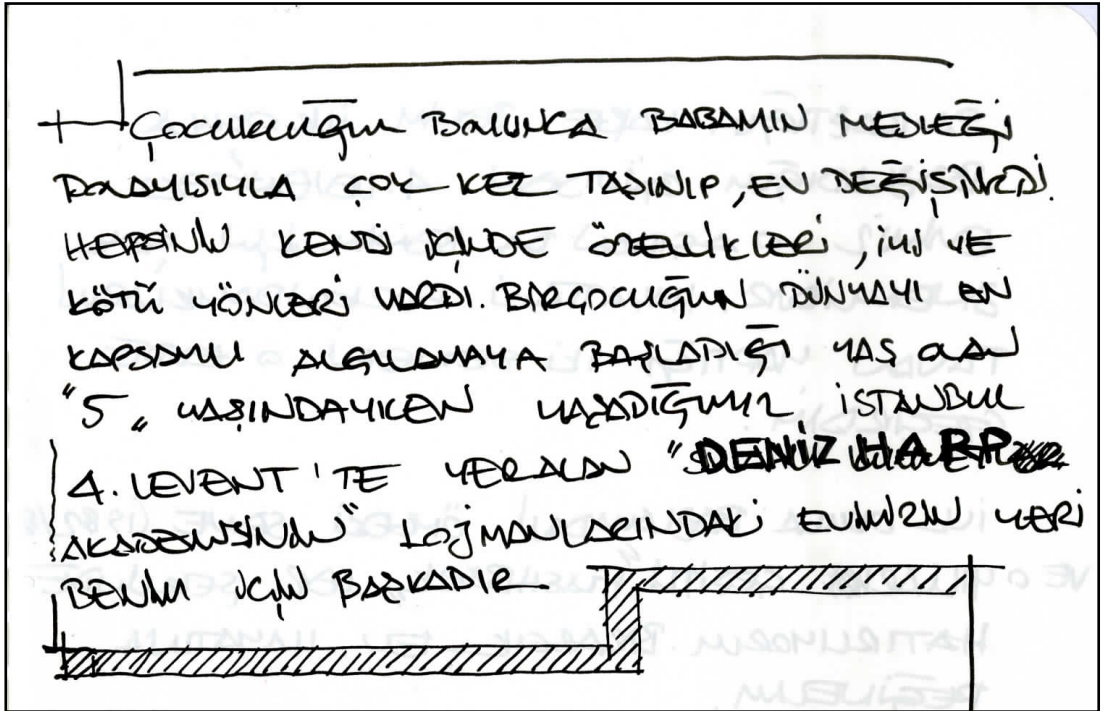 ÇOCUKLUĞUM BOYUNCA BABAMIN MESLEĞİ
DOLAYISIYLA ÇOK KEZ TAŞINIP, EV DEĞİŞTİRDİ.
HEPSİNİN KENDİ İÇİNDE ÖZELLİKLERİ, İYİ VE
KÖTÜ YÖNLERİ VARDI. BİR ÇOCUĞUN DÜNYAYI EN
KAPSAMLI ALGILAMAYA BAŞLADIĞI YAŞ OLAN
"5" YAŞINDAYKEN YAŞADIĞIMIZ İSTANBUL
4. LEVENT'TE YER ALAN "DENİZ HARP
AKADEMİSİNİN" LOJMANLARINDAKİ EVİMİZİN YERİ
BENİM İÇİN BAŞKADIR.